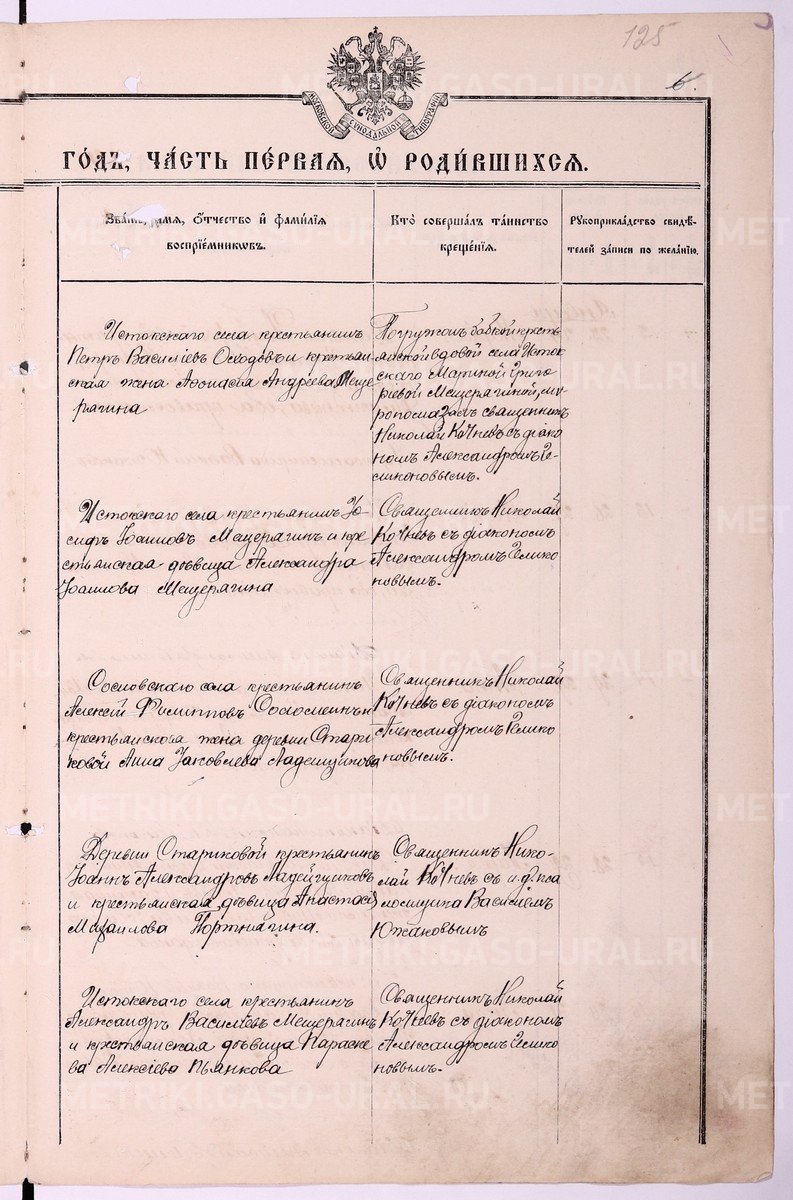 125
6.
МОСКОВСКОЙ СѴНОДАЛЬНОЙ ТИПОГРАФІИ
ГОДЪ, ЧАСТЬ ПЕРВАЯ, Ѡ РОДИВШИХСЯ.
Званіе, имя, отчество и фамилія
воспріемниковъ.
Кто совершалъ таинство
крещенія.
Рукоприкладство свидѣ-
телей записи по желанію.
Истокскаго села крестьянинъ
Петръ Василіевъ Осходовъ и крестьян
ская жена Аѳонасія Андреева Меще
рягина
Погружомъ бабкой кресть
янской вдовой села Исток
скаго Мариной Григо
рьевой Мещерягиной, мѵ
ропомазамъ священникъ
Николай Кочневъ съ діако
номъ Александромъ
Истокскаго села крестьянинъ Іо-
сифъ Іоанновъ Мещерягинъ и кре
стьянская дѣвица Александра
Іоаннова Мещерягина
Священникъ Николай
Кочневъ съ діакономъ
Александромъ
новымъ.
Сосновскаго села крестьянинъ
Алексѣй Филипповъ и
крестьянская жена деревни Стари
ковой Анна Іаковлева Ладейщикова
Священникъ Николай
Кочневъ съ діакономъ
Александромъ
новымъ.
Деревни Стариковой крестьянинъ
Іоаннъ Александровъ Ладейщиковъ
и крестьянская дѣвица Анастасія
Михаилова Портнягина.
Священникъ Нико-
лай Кочневъ съ и. д. пса
ломщика Василіемъ
Южаковымъ
Истокскаго села крестьянинъ
Александръ Василіевъ Мещерягинъ
и крестьянская дѣвица Параске
ва Алексіева Пьянкова
Священникъ Николай
Кочневъ съ діакономъ
Александромъ
новымъ.
METRIKI.GASO-URAL.RU